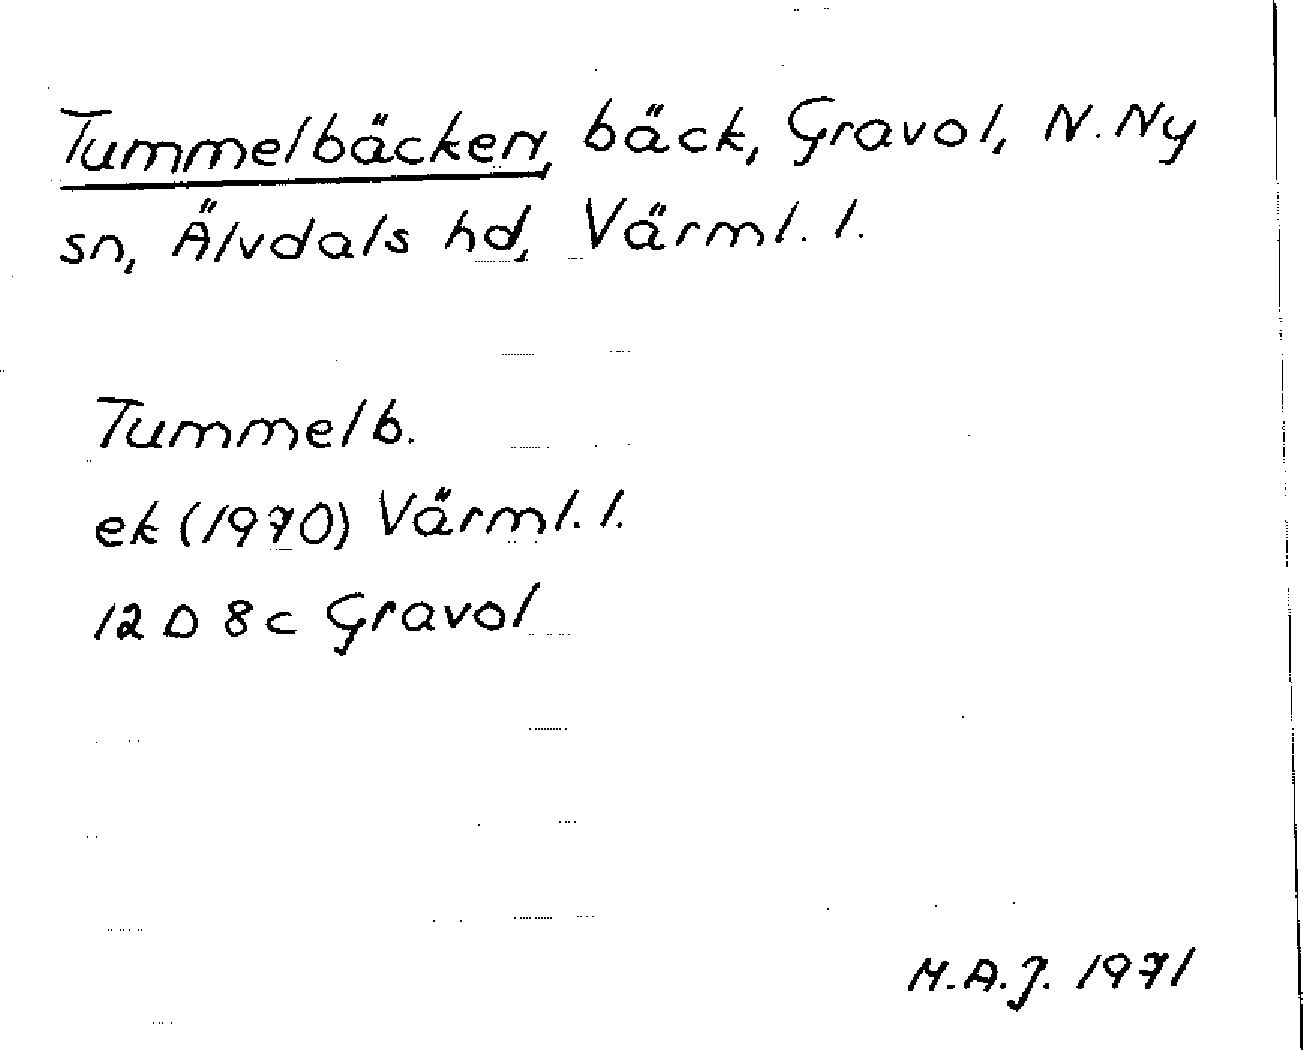 Tummelbäcken, bäck, Gravol, N. Ny
sn, Älvdals hd, Värml. l.
Tummelb.
ek (1970) Värml. l.
12 D 8 c Gravol
M.A.J. 1971